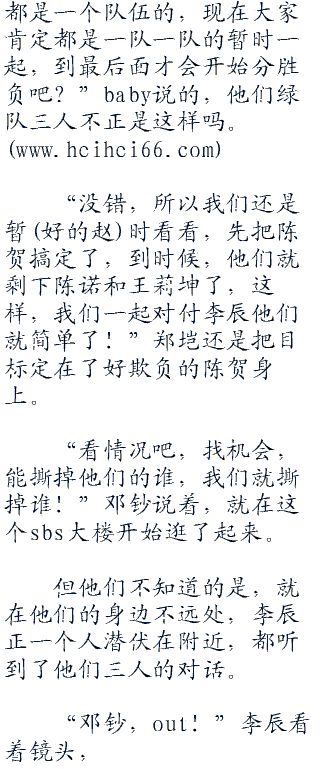 都是一个队伍的，现在大家
肯定都是一队一队的暂时一
起，到最后面才会开始分胜
负吧？”baby说的，他们绿
队三人不正是这样吗。
(www.hcihci66.com)
“没错，所以我们还是
暂(好的赵)时看看，先把陈
贺搞定了，到时候，他们就
剩下陈诺和王莉坤了，这
样，我们一起对付李辰他们
就简单了！”郑垲还是把目
标定在了好欺负的陈贺身
上。
“看情况吧，找机会，
能撕掉他们的谁，我们就撕
掉谁！”邓钞说着，就在这
个sbs大楼开始逛了起来。
但他们不知道的是，就
在他们的身边不远处，李辰
正一个人潜伏在附近，都听
到了他们三人的对话。
“邓钞，out！”李辰看
着镜头，